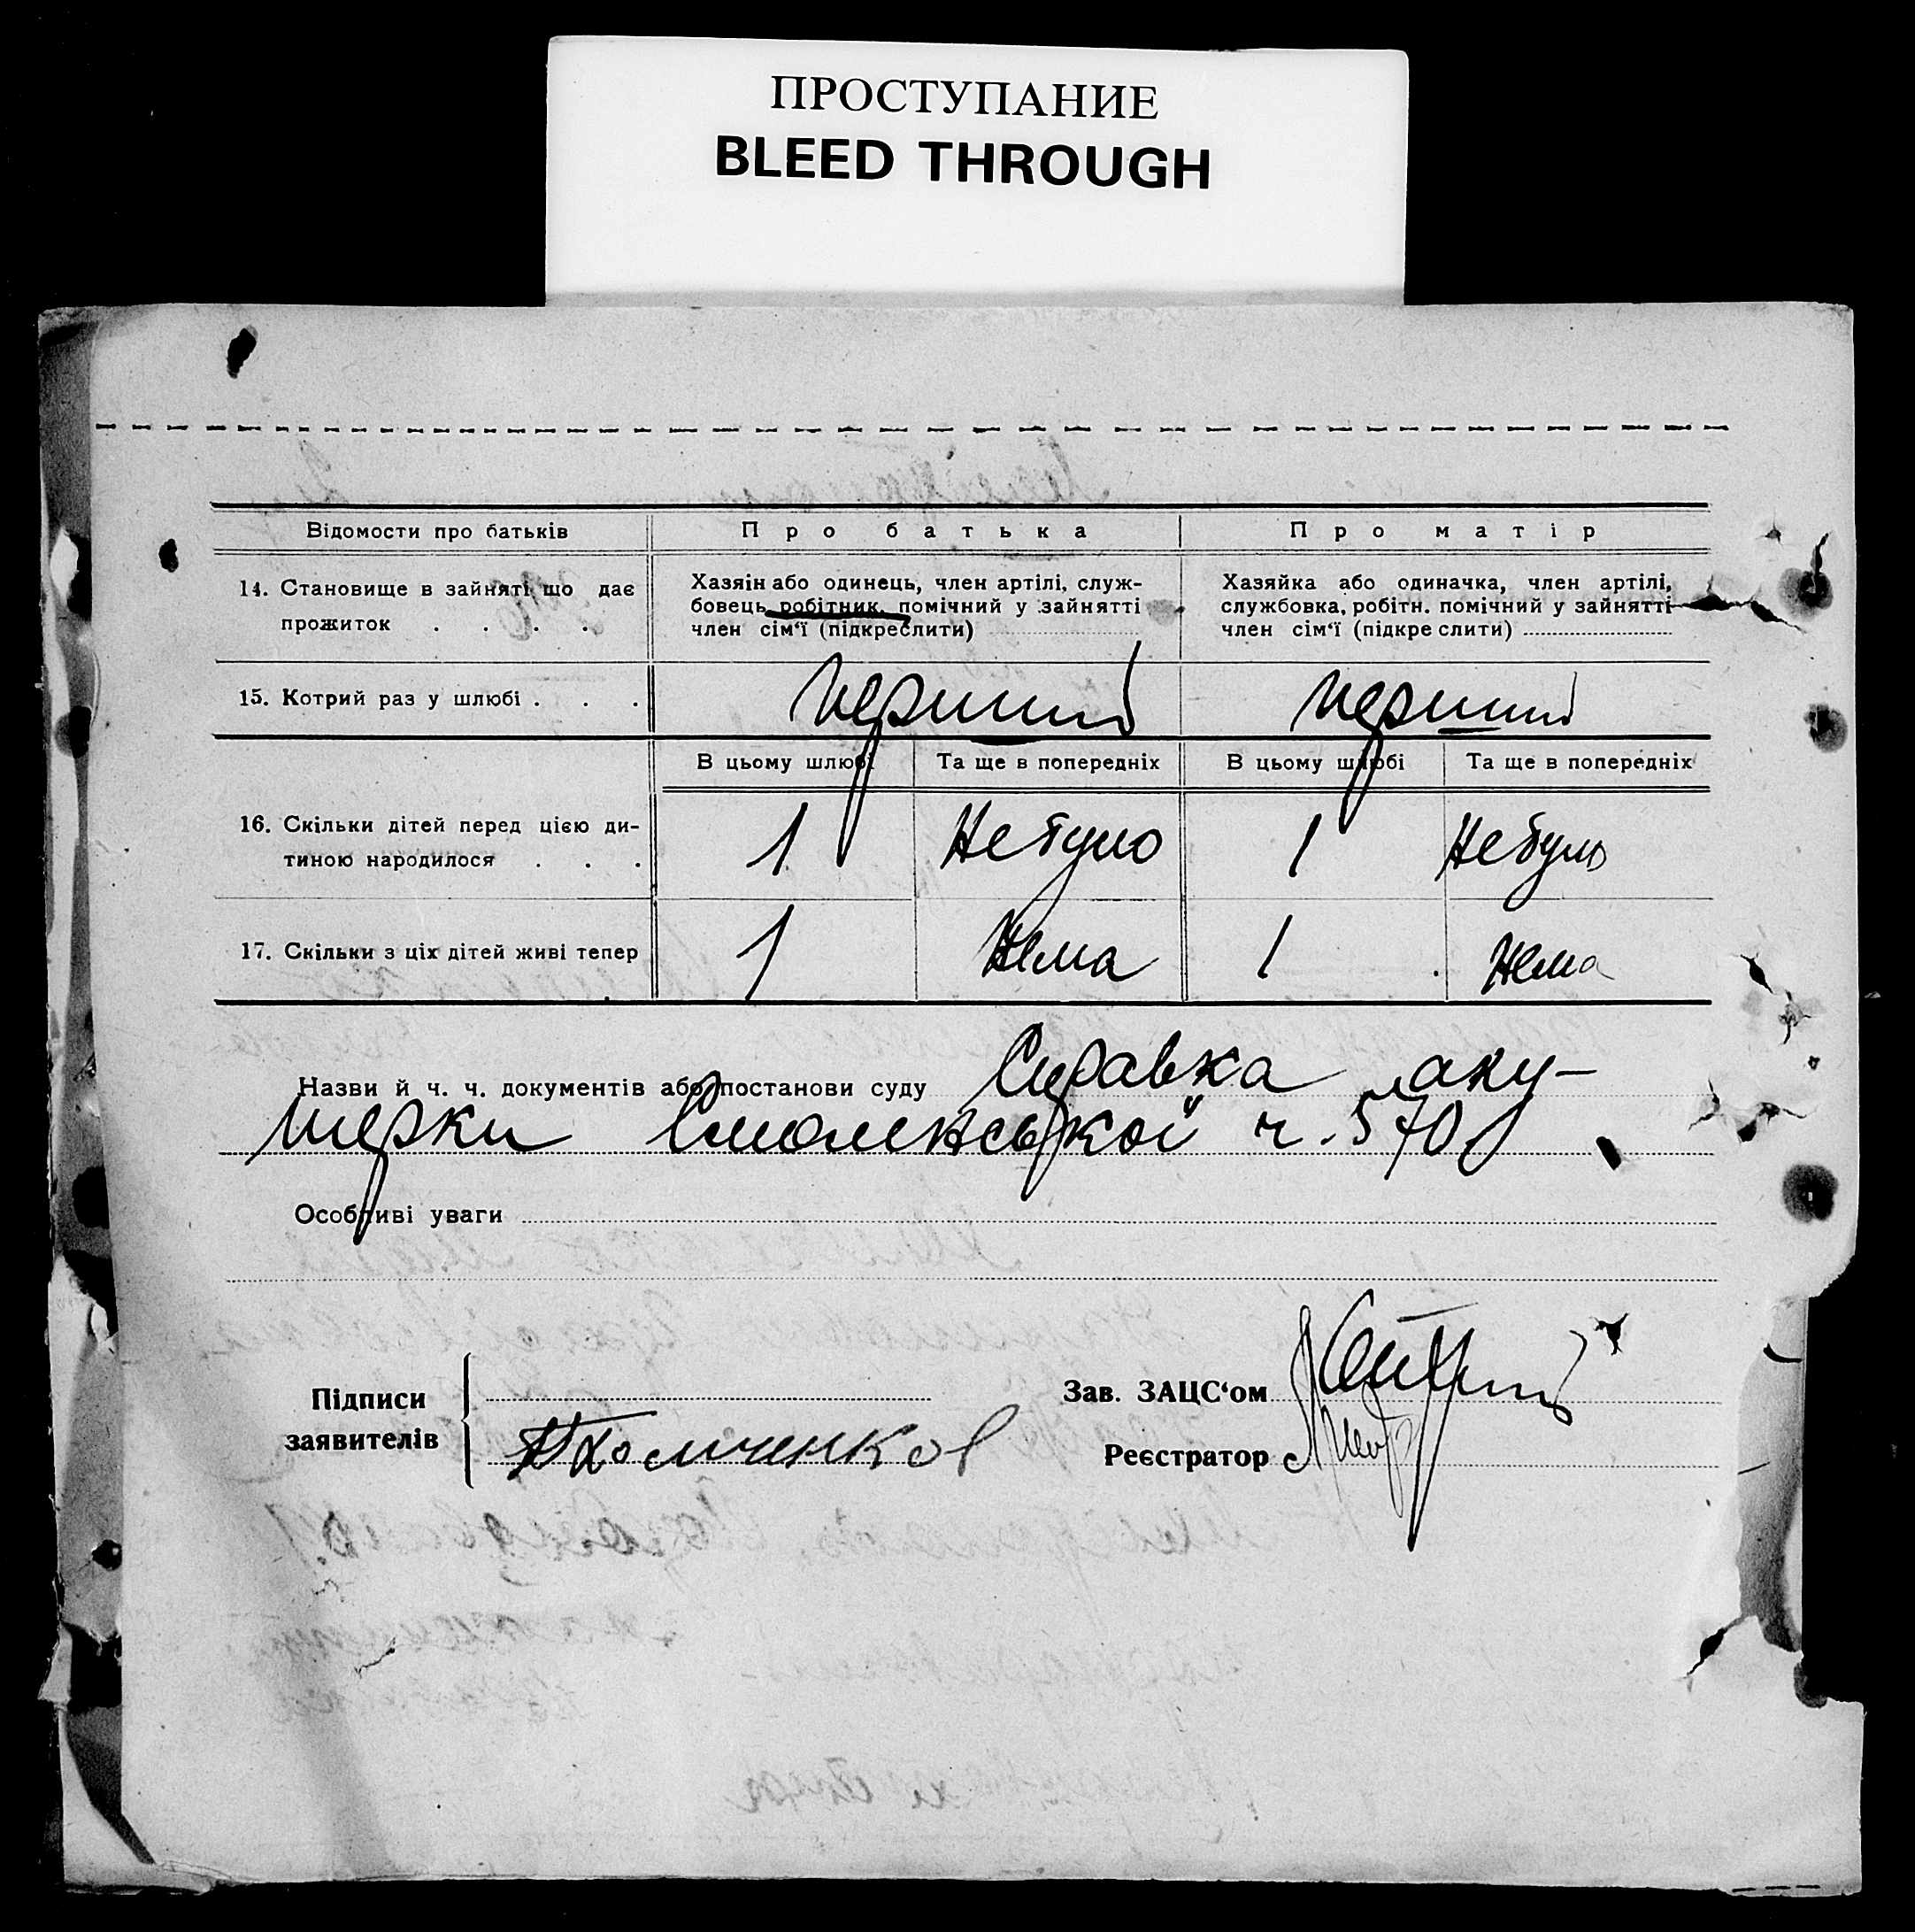 ПРОСТУПАНИЕ
BLEED THROUGH
Відомости про батьків
Про батька
Про матір
14. Становище в зайняті що дає
прожиток . . . .
Хазяін або одинець, член артілі, служ-
бовець, робітник, помічний у зайнятті
член сім'ї (підкреслити)
Хазяйка або одиначка, член артілі,
службовка, робітн. помічний у зайнятті
член сім'ї (підкреслити)
15. Котрий раз у шлюбі . . .
перший
перший
В цьому шлюбі
Та ще в попередніх
В цьому шлюбі
Та ще в попередніх
16. Скільки дітей перед цією ди-
тиною народилося . . .
1
Не було
1
Не було
17. Скільки з ціх дітей живі тепер
1
Нема
1
Нема
Назви й ч. ч. документів або постанови суду Справка аку-
шерки Смоленської ч. 570
Особливі уваги
Підписи
заявителів
Хомченков
Зав. ЗАЦС'ом
Реєстратор